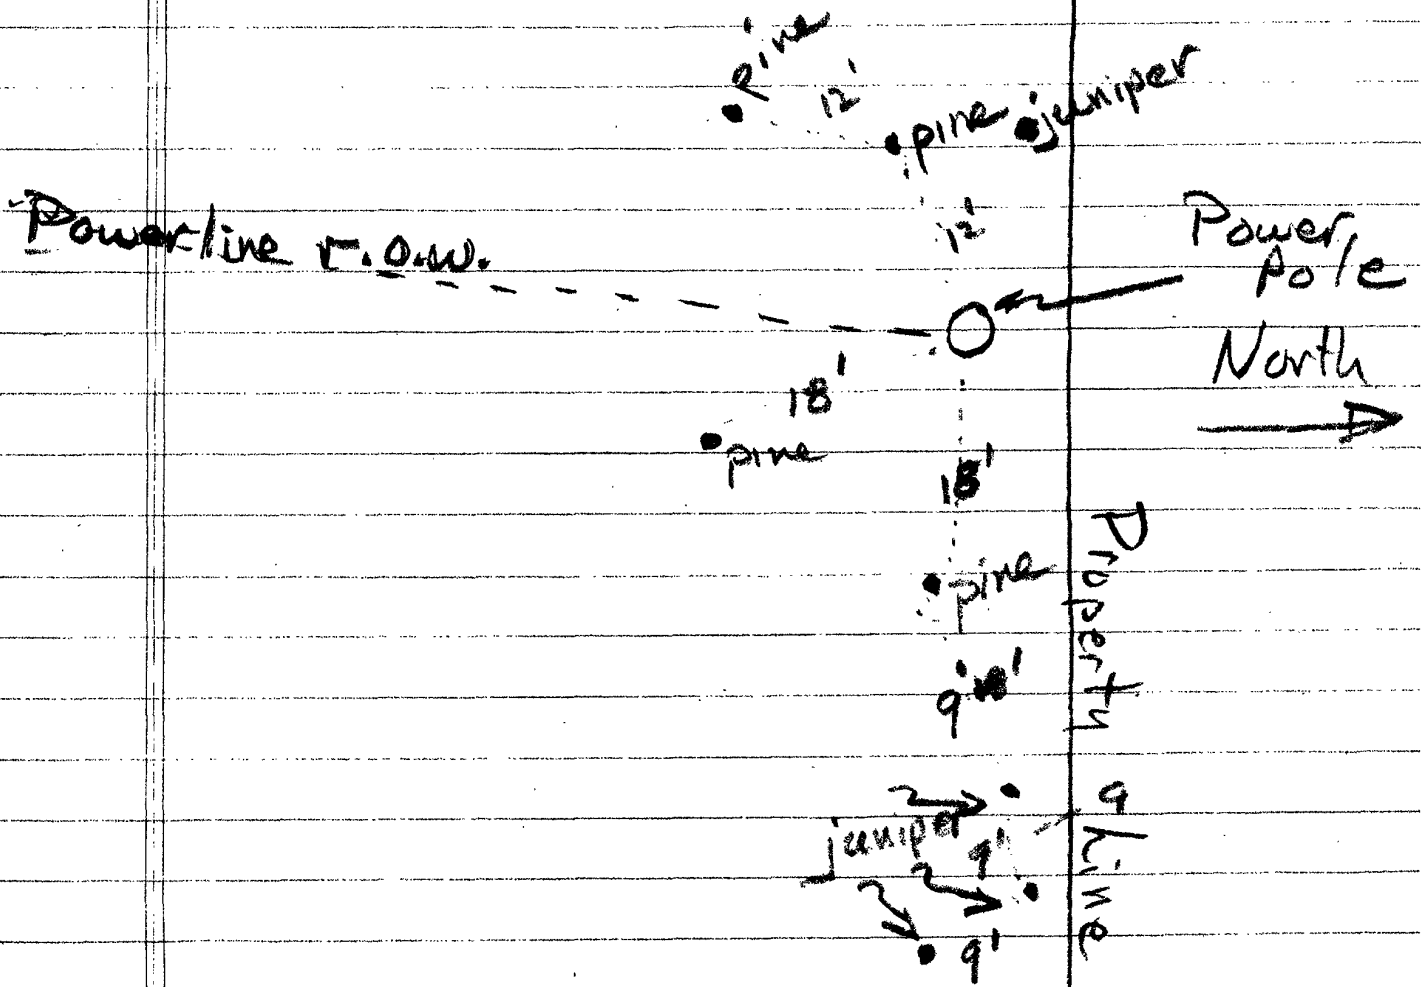 pine
12'
pine
juniper
12'
Powerline r.o.w.
Power
Pole
North
18'
pine
18'
pine
Property Line
9'
juniper
9'
9'
9